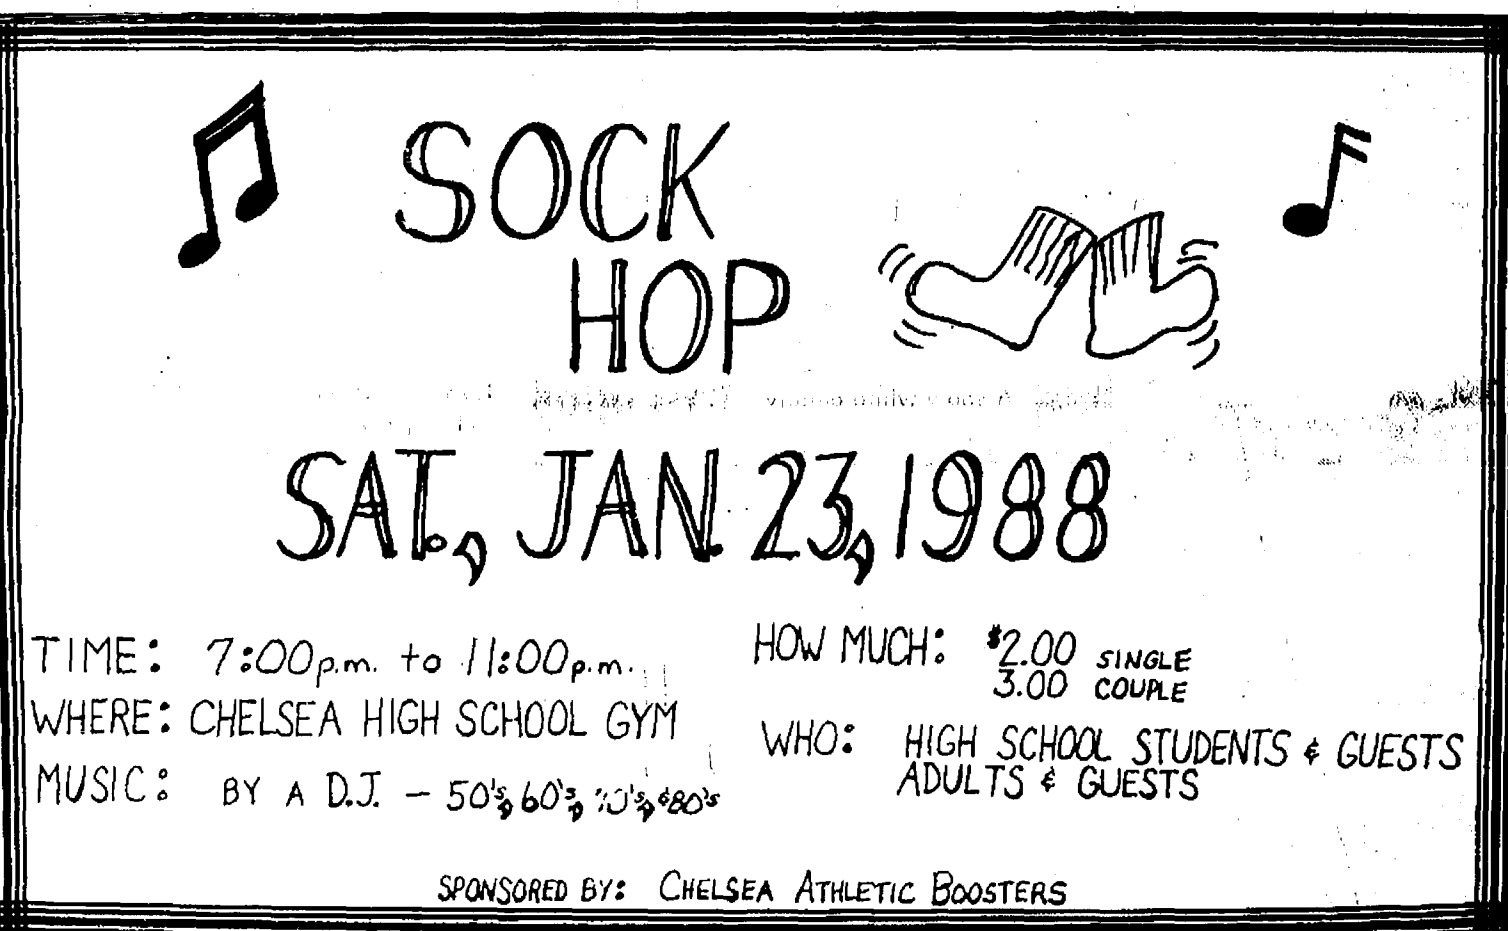 SOCK
HOP
SAT., JAN. 23, 1988
TIME: 7:00 p.m. to 11:00 p.m.
WHERE: CHELSEA HIGH SCHOOL GYM
MUSIC: BY A D.J. — 50's, 60's, 70's, & 80's
HOW MUCH: $2.00 SINGLE
3.00 COUPLE
WHO: HIGH SCHOOL STUDENTS & GUESTS
ADULTS & GUESTS
SPONSORED BY: CHELSEA ATHLETIC BOOSTERS